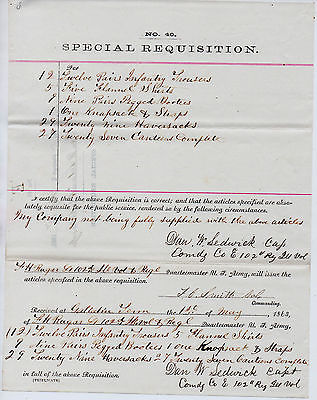 No. 40.
SPECIAL REQUISITION.
12 Twelve Pairs Infantry Trousers
5 Five Flannel Shirts
9 Nine Pairs Pegged Bootees
1 One Knapsack & Straps
27 Twenty Nine Haversacks
27 Twenty Seven Canteens Complete
I certify that the above Requisition is correct; and that the articles specified are abso-
lutely requisite for the public service, rendered so by the following circumstances.
My Company not being fully supplied with the above articles
Dan W Sedwick Cap
Comdy Co E 102d Reg Ill Vol
Quartermaster U. S. Army, will issue the
articles specified in the above requisition.
F. C. Smith Col
Commanding.
Received at Gallatin Tenn the 1st of May 1863,
of Quartermaster U. S. Army,
(12) Twelve Pairs Infantry Trousers 5 Flannel Shirts
9 Nine Pairs Pegged Bootees 1 One Knapsack & Straps
29 Twenty Nine Haversacks 27 Twenty Seven Canteens Complete
in full of the above Requisition.
Dan W Sedwick Capt
Comdy Co E 102d Reg Ill Vol